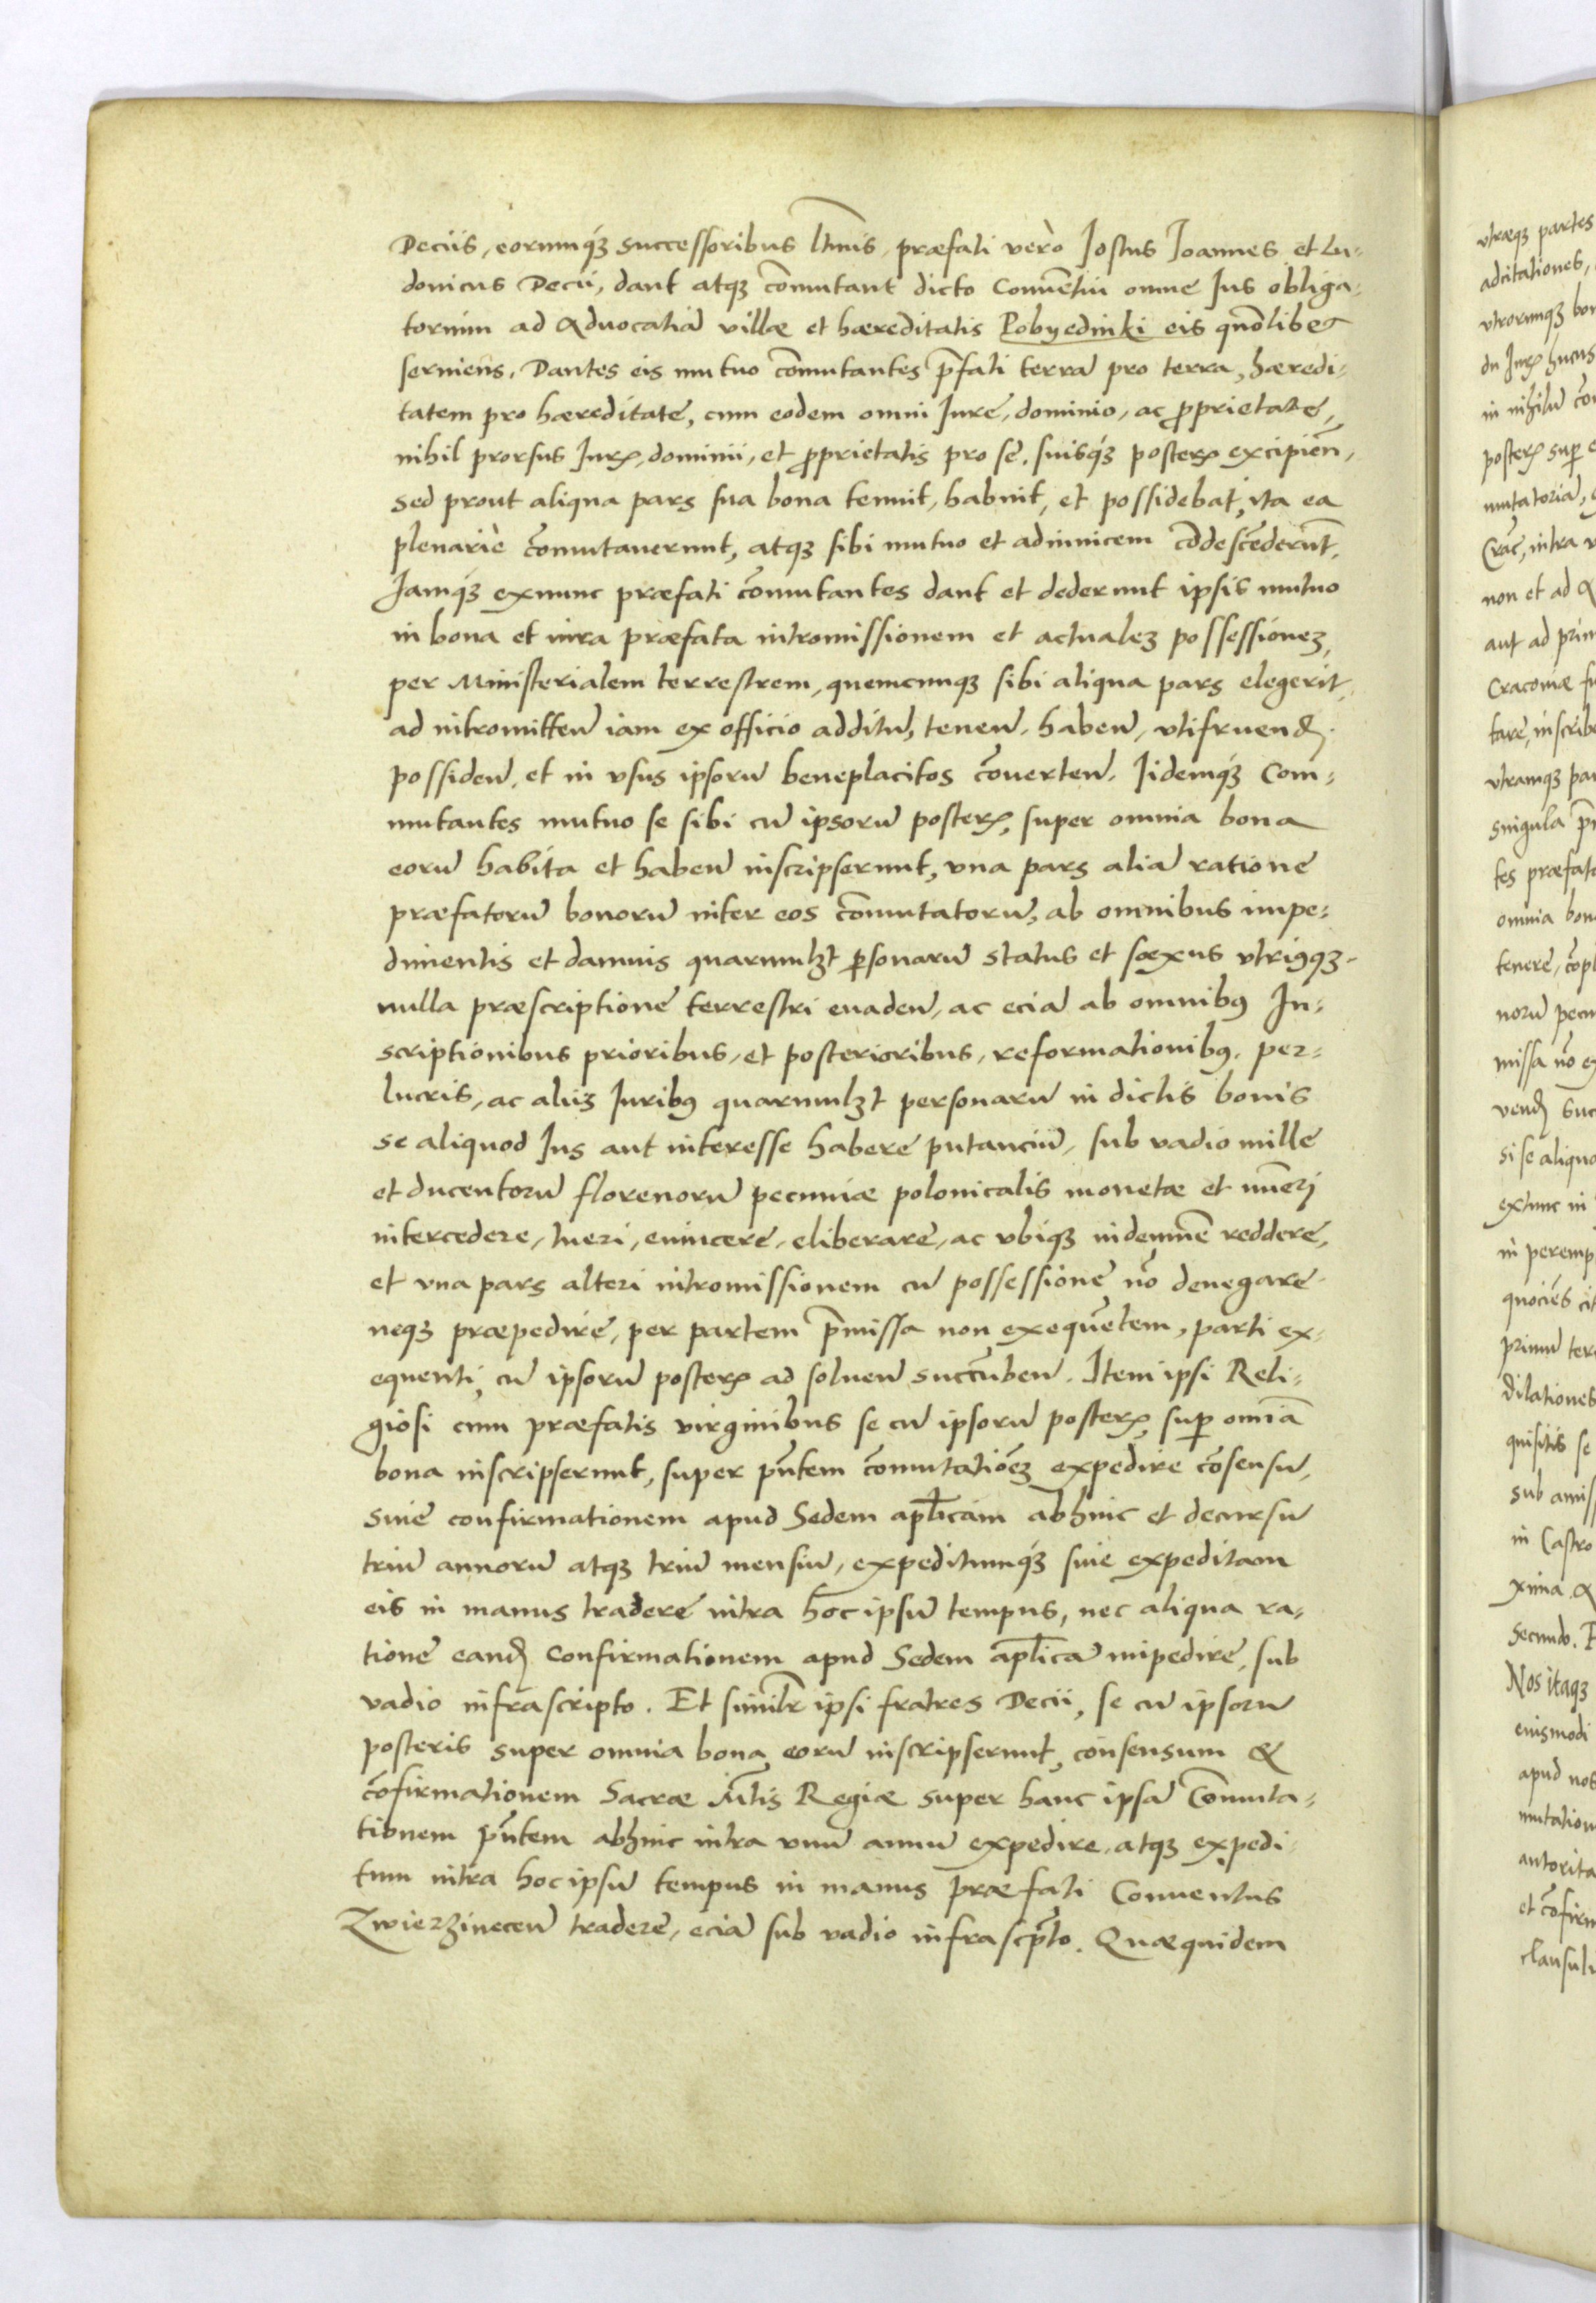 Deciis, eorumq́ꝫ successoribus ltĩmis, præfati verò Jostus Joannes et Lu-
douicus Decii, dant atqꝫ cōmutant dicto Conuētui omne Jus obliga-
torium ad Aduocatiā villæ et hæreditatis Pobyedniki eis quōlibet
seruiens. Dantes eis mutuo cōmutantes p̄fati terrā pro terra, hæredi-
tatem pro hæreditate, cum eodem omni Jure, dominio, ac ꝓprietate,
nihil prorsus Jurꝭ, dominii, et ꝓprietatis pro se, suisq́ꝫ posterꝭ excipień,
sed prout aliqua pars sua bona tenuit, habuit, et possidebat, ita ea
plenariè cōmutauerunt, atqꝫ sibi mutuo et adinuicem cōdescēderūt,
Jamq́ꝫ exnunc præfati cōmutantes dant et dederunt ipsis mutuo
in bona et iura præfata intromissionem et actualeꝫ possessioneꝫ,
per Ministerialem terrestrem, quemcunqꝫ sibi aliqua pars elegerit,
ad intromitteñ iam ex officio additū, teneñ, habeñ, vtifruend̃.
possideñ, et in vsus ipsorū beneplacitos cōuerteñ. Iidemq́ꝫ Com-
mutantes mutuo se sibi cū ipsorū posterꝭ, super omnia bona
eorū habita et habeñ inscripserunt, vna pars aliā ratione
præfatorū bonorū inter eos cōmutatorū, ab omnibus impe-
dimentis et damnis quarumlꝫt ꝑsonarū status et sæxus vtriꝰqꝫ.
nulla præscriptione terrestri euadeñ, ac eciā ab omnibꝰ In-
scriptionibus prioribus, et posterioribus, reformationibꝰ, per-
lucris, ac aliiꝫ Juribꝰ quarumlꝫt personarū in dictis bonis
se aliquod Jus aut interesse habere putanciū, sub vadio mille
et ducentorū florenorū pecuniæ polonicalis monetæ et nūeri
intercedere, tueri, euincere, eliberare, ac vbiqꝫ indemnē reddere,
et vna pars alteri intromissionem cū possessione nō denegare
neqꝫ præpedire, per partem p̄missa non exequētem, parti ex-
equenti, cū ipsorū posterꝭ ad solueñ succūbeñ. Item ipsi Reli-
giosi cum præfatis virginibus se cū ipsorū posterꝭ, suꝑ omīa
bona inscripserunt, super pñtem cōmutatiōeꝫ expedire cōsensū,
siue confirmationem apud Sedem aplicam abhinc et decursu
triū annorū atqꝫ triū mensiū, expeditumq́ꝫ siue expeditam
eis in manus tradere intra hoc ipsū tempus, nec aliqua ra-
tione eand̃ confirmationem apud Sedem aplicā impedire, sub
vadio infrascripto. Et similr̃ ipsi fratres Decii, se cū ipsorū
posteris super omnia bona eorū inscripserunt, consensum &
cōfirmationem Sacræ Mtĩs Regiæ super hanc ipsā Cōmuta-
tionem pñtem abhinc intra vnū annū expedire, atqꝫ expedi-
tum intra hoc ipsū tempus in manus præfati Conuentus
Zwierzineceñ tradere, eciā sub vadio infrascp̃to. Quæquidem